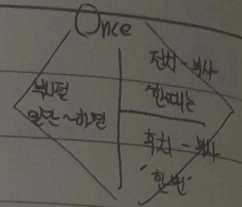 Once
부사절
일단 ~하면
전치 - 부사
"한때는
후치 - 부사
"한번"